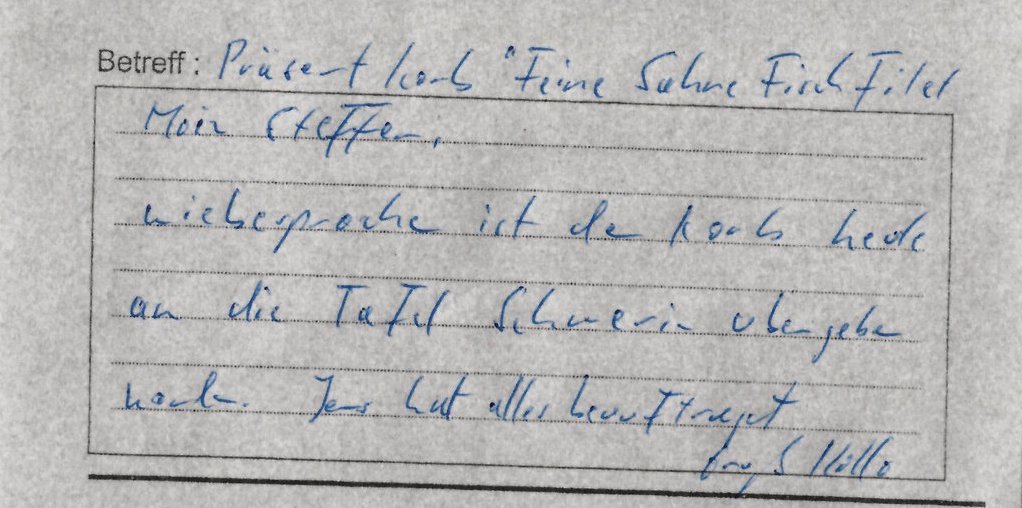 Betreff: Präsentkorb "Feine Sahne Fisch Filet
Moin Steffen,
wie besprochen ist der Korb heute
an die Tafel Schwerin übergeben
worden. Jens hat alles beauftragt